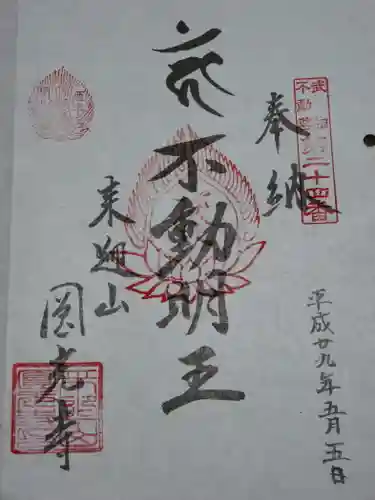 武相
不動尊第二十四番
奉納
不動明王
来迎山
圓光寺
平成廿九年五月五日